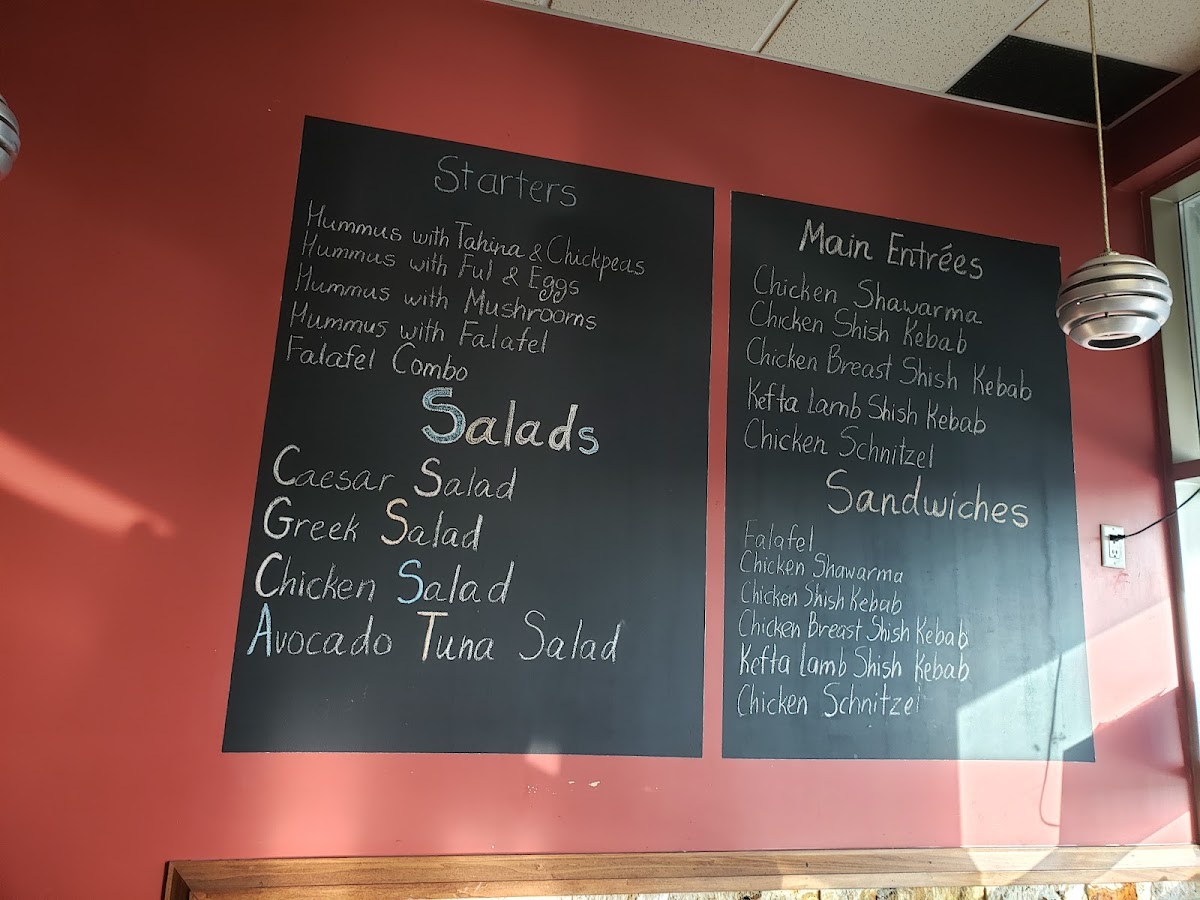 Starters
Hummus with Tahina & Chickpeas
Hummus with Ful & Eggs
Hummus with Mushrooms
Hummus with Falafel
Falafel Combo
Salads
Caesar Salad
Greek Salad
Chicken Salad
Avocado Tuna Salad
Main Entrées
Chicken Shawarma
Chicken Shish Kebab
Chicken Breast Shish Kebab
Kefta Lamb Shish Kebab
Chicken Schnitzel
Sandwiches
Falafel
Chicken Shawarma
Chicken Shish Kebab
Chicken Breast Shish Kebab
Kefta Lamb Shish Kebab
Chicken Schnitzel